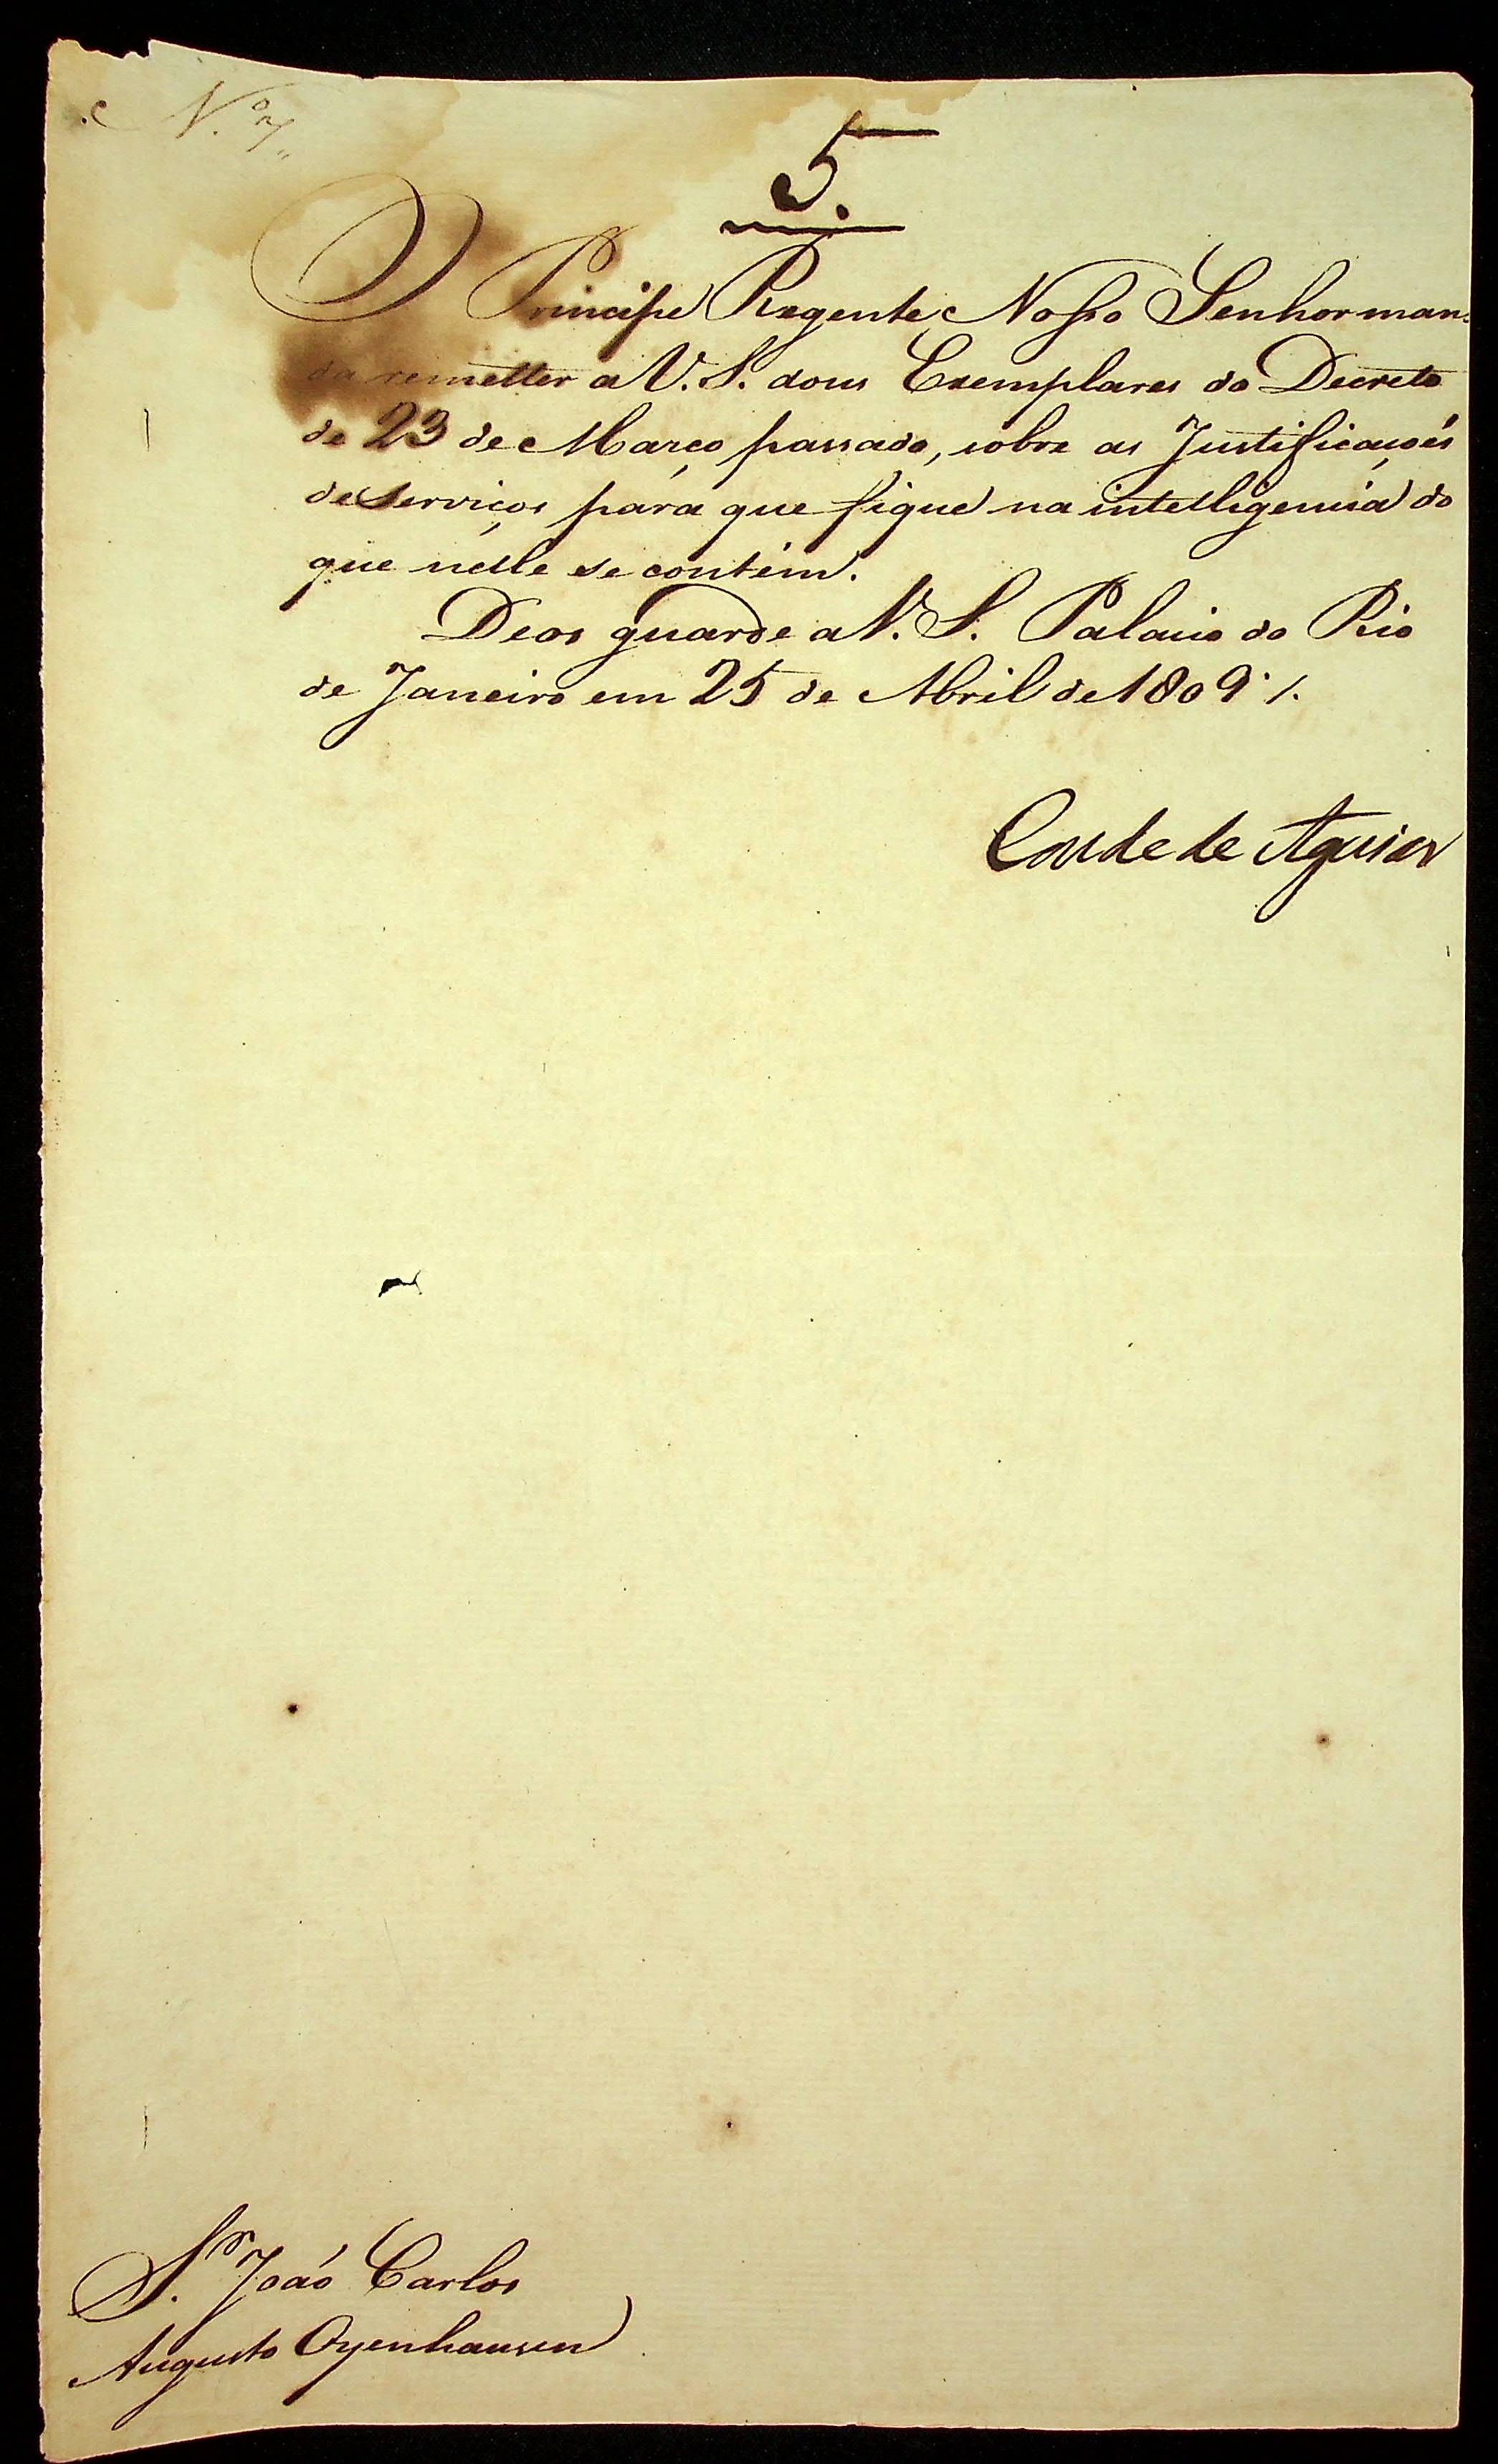 N.º 7
5.
O Principe Regente Nosso Senhor man-
da remetter a V. S. dous Exemplares do Decreto
de 23 de Março passado, sobre as Justificaçoẽs
de Serviços para que fique na intelligencia do
que nelle se contém.
Deos guarde a V. S. Palacio do Rio
de Janeiro em 25 de Abril de 1809 ·/.
Conde de Aguiar
S.r João Carlos
Augusto Oyenhausen